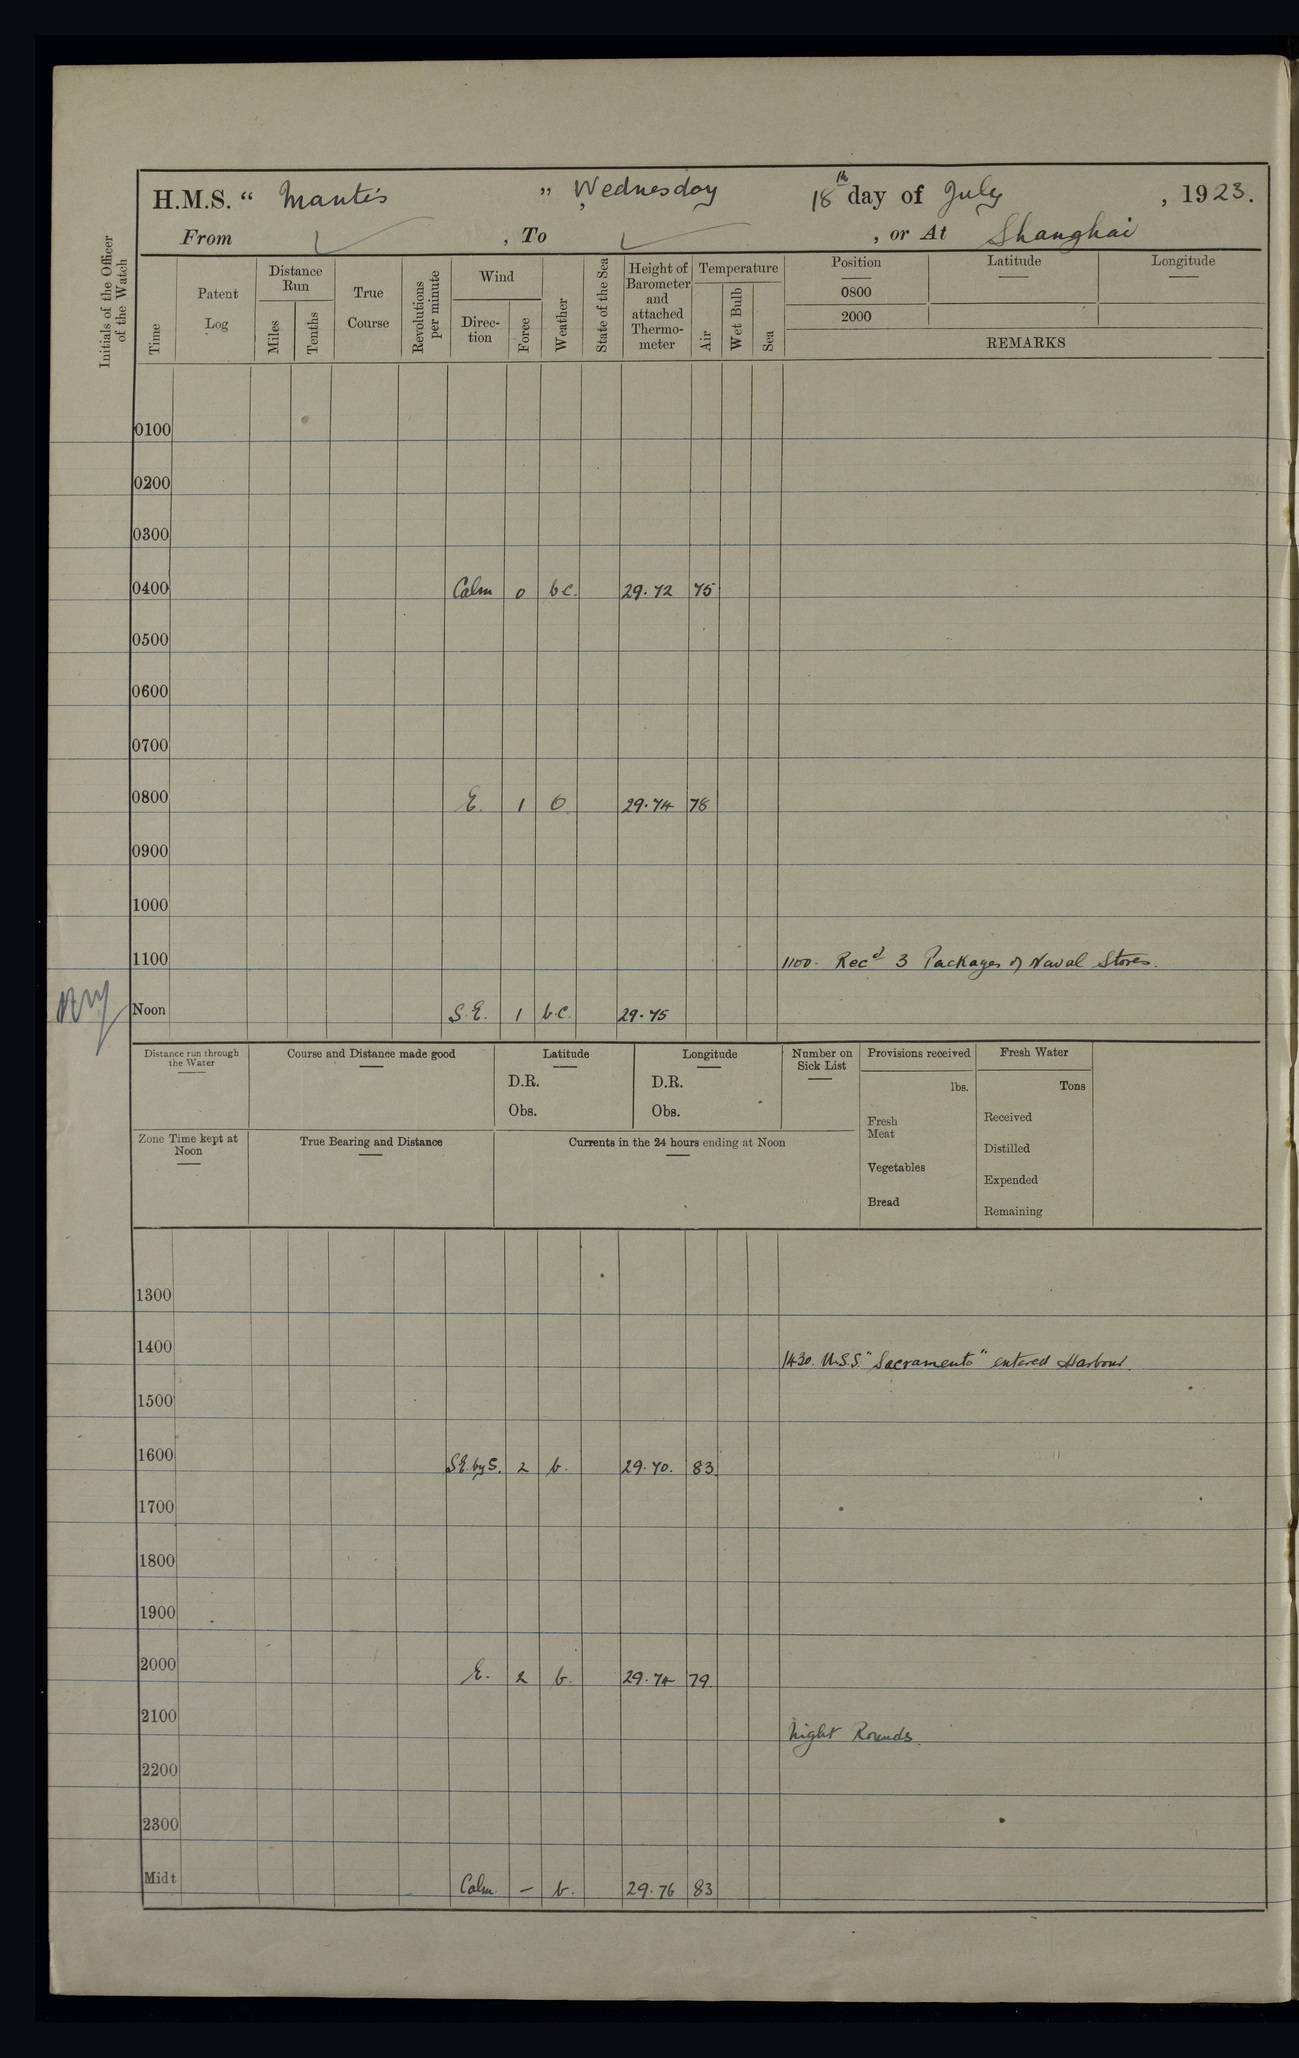 H.M.S. “ Mantis ” Wednesday 18th day of July, 1923.
From ✓, To ✓, or At Shanghai
Initials of the Officer of the Watch
Time
Patent Log
Distance Run
Miles
Tenths
True Course
Revolutions per minute
Wind
Direc-tion
Force
Weather
State of the Sea
Height of Barometer and attached Thermo-meter
Temperature
Air
Wet Bulb
Sea
Position
Latitude
Longitude
0800
2000
REMARKS
0100
0200
0300
0400 Calm 0 b.c. 29.72 75
0500
0600
0700
0800 E. 1 O 29.74 78
0900
1000
1100 1100. Recd 3 Packages of Naval Stores.
Noon S.E. 1 b.c. 29.75
Distance run through the Water
Course and Distance made good
Latitude
D.R.
Obs.
Longitude
D.R.
Obs.
Number on Sick List
Provisions received
lbs.
Fresh Meat
Vegetables
Bread
Fresh Water
Tons
Received
Distilled
Expended
Remaining
Zone Time kept at Noon
True Bearing and Distance
Currents in the 24 hours ending at Noon
1300
1400 1430. U.S.S. "Sacramento" entered Harbour.
1500
1600 S.E. by S. 2 b. 29.70. 83
1700
1800
1900
2000 E. 2 b. 29.74 79.
2100 Night Rounds.
2200
2300
Midt Calm — b. 29.76 83